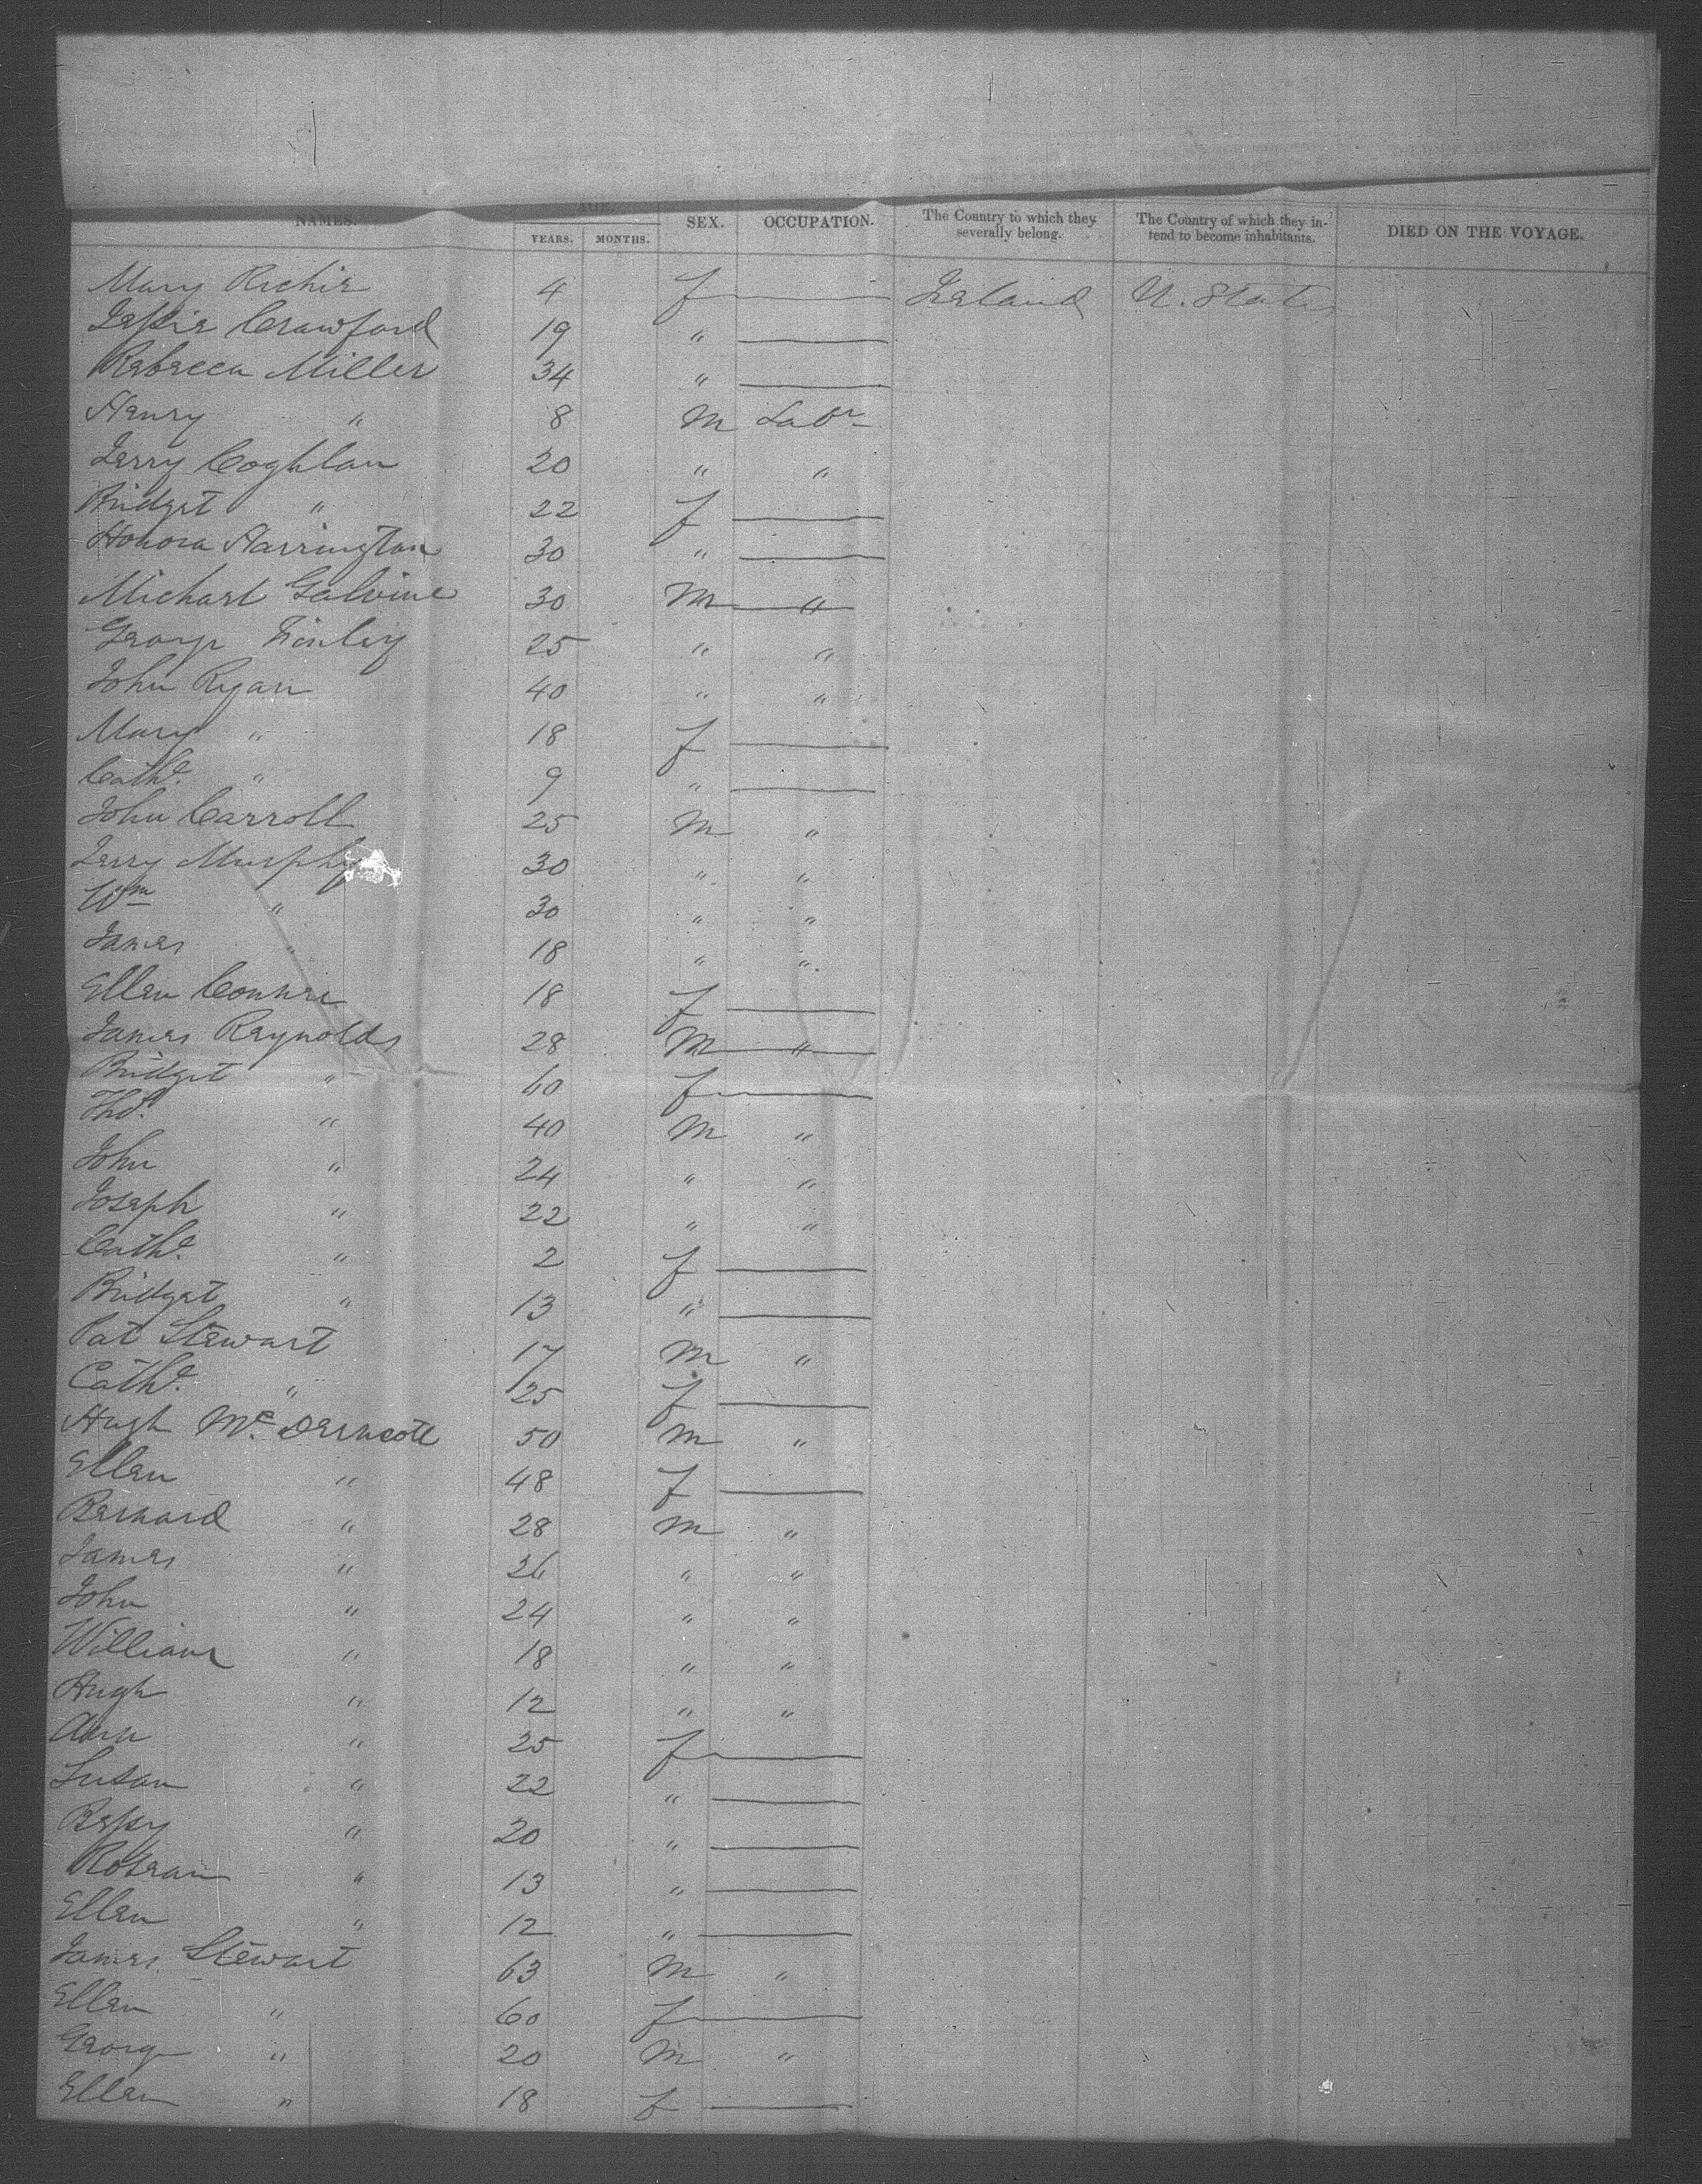 NAMES. AGE. SEX. OCCUPATION. The Country to which they severally belong. The Country of which they intend to become inhabitants. DIED ON THE VOYAGE.
YEARS. MONTHS.
Mary Richie 4 f — Ireland U. States
Jessie Crawford 19 " —
Rebecca Miller 34 " —
Henry " 8 M Labr
Jerry Coghlan 20 " "
Bridget " 22 f —
Honora Harrington 30 " —
Michael Galvine 30 M "
George Finley 25 " "
John Ryan 40 " "
Mary " 18 f —
Cathe. " 9 " —
John Carroll 25 M "
Jerry Murphy 30 " "
Wm " 30 " "
James " 18 " "
Ellen 18 f —
James Reynolds 28 M "
Bridget " 60 f —
Thos. " 40 M "
John " 24 " "
Joseph " 22 " "
Cathe. " 2 f —
Bridget " 13 " —
Pat Stewart 17 M "
Cathe. " 25 f —
Hugh Mc. Dermott 50 M "
Ellen " 48 f —
Bernard " 28 M "
James " 26 " "
John " 24 " "
William " 18 " "
Hugh " 12 " "
Ann " 25 f —
Susan " 22 " —
Bessy " 20 " —
Rosean " 13 " —
Ellen " 12 " —
James Stewart 63 M "
Ellen " 60 f —
George " 20 M "
Ellen " 18 f —